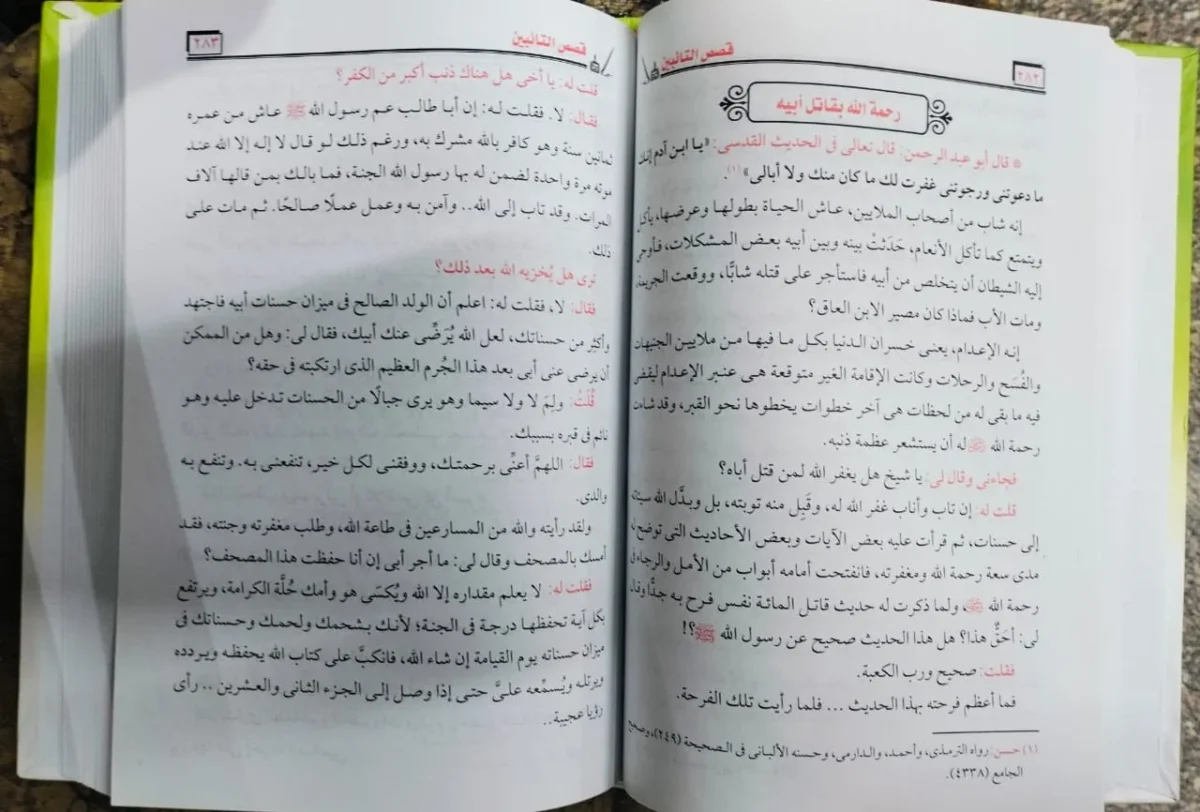 قصص التائبين
٢٨٢
رحمة الله بقاتل أبيه
* قال أبو عبد الرحمن: قال تعالى فى الحديث القدسى: «يا ابن آدم إنك
ما دعوتنى ورجوتنى غفرت لك ما كان منك ولا أبالى»(١).
إنه شاب من أصحاب الملايين، عاش الحياة بطولها وعرضها، يأكل
ويتمتع كما تأكل الأنعام، حَدَثتْ بينه وبين أبيه بعض المشكلات، فأوحى
إليه الشيطان أن يتخلص من أبيه فاستأجر على قتله شابًّا، ووقعت الجريمة،
ومات الأب فماذا كان مصير الابن العاق؟
إنه الإعدام، يعنى خسران الدنيا بكل ما فيها من ملايين الجنيهات
والفُسَح والرحلات وكانت الإقامة الغير متوقعة هى عنبر الإعدام ليقضى
فيه ما بقى له من لحظات هى آخر خطوات يخطوها نحو القبر، وقد شاءت
رحمة الله ﷻ له أن يستشعر عظمة ذنبه.
فجاءنى وقال لى: يا شيخ هل يغفر الله لمن قتل أباه؟
قلت له: إن تاب وأناب غفر الله له، وقَبِل منه توبته، بل وبدَّل الله سيئاته
إلى حسنات، ثم قرأت عليه بعض الآيات وبعض الأحاديث التى توضح له
مدى سعة رحمة الله ومغفرته، فانفتحت أمامه أبواب من الأمل والرجاء فى
رحمة الله ﷻ، ولما ذكرت له حديث قاتل المائة نفس فرح به جدًّا وقال
لى: أحَقٌّ هذا؟ هل هذا الحديث صحيح عن رسول الله ﷺ؟!
فقلت: صحيح ورب الكعبة.
فما أعظم فرحته بهذا الحديث ... فلما رأيت تلك الفرحة.
(١) حسن: رواه الترمذى، وأحمد، والدارمى، وحسنه الألبانى فى الصحيحة (٢٤٩)، وصحيح
الجامع (٤٣٣٨).
قصص التائبين
٢٨٣
قلت له: يا أخى هل هناك ذنب أكبر من الكفر؟
فقال: لا. فقلت له: إن أبا طالب عم رسول الله ﷺ عاش من عمره
ثمانين سنة وهو كافر بالله مشرك به، ورغم ذلك لو قال لا إله إلا الله عند
موته مرة واحدة لضمن له بها رسول الله الجنة، فما بالك بمن قالها آلاف
المرات. وقد تاب إلى الله.. وآمن به وعمل عملًا صالحًا. ثم مات على
ذلك.
ترى هل يُخزيه الله بعد ذلك؟
فقال: لا، فقلت له: اعلم أن الولد الصالح فى ميزان حسنات أبيه فاجتهد
وأكثِر من حسناتك، لعل الله يُرَضِّى عنك أبيك، فقال لى: وهل من الممكن
أن يرضى عنى أبى بعد هذا الجُرم العظيم الذى ارتكبته فى حقه؟
قُلْتُ: ولِمَ لا ولا سيما وهو يرى جبالًا من الحسنات تدخل عليه وهو
نائم فى قبره بسببك.
فقال: اللهمَّ أعنِّى برحمتك، ووفقنى لكل خير، تنفعنى به. وتنفع به
والدى.
ولقد رأيته والله من المسارعين فى طاعة الله، وطلب مغفرته وجنته، فقد
أمسك بالمصحف وقال لى: ما أجر أبى إن أنا حفظت هذا المصحف؟
فقلت له: لا يعلم مقداره إلا الله ويُكسَى هو وأمك حُلَّة الكرامة، ويرتفع
بكل آية تحفظها درجة فى الجنة؛ لأنك بشحمك ولحمك وحسناتك فى
ميزان حسناته يوم القيامة إن شاء الله، فانكبَّ على كتاب الله يحفظه ويردده
ويرتله ويُسمِّعه علىَّ حتى إذا وصل إلى الجزء الثانى والعشرين .. رأى
رؤيا عجيبة..